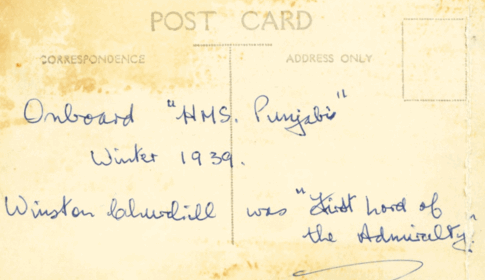 POST CARD
CORRESPONDENCE
ADDRESS ONLY
Onboard "HMS. Punjabi"
Winter 1939.
Winston Churchill was "First Lord of
the Admiralty".